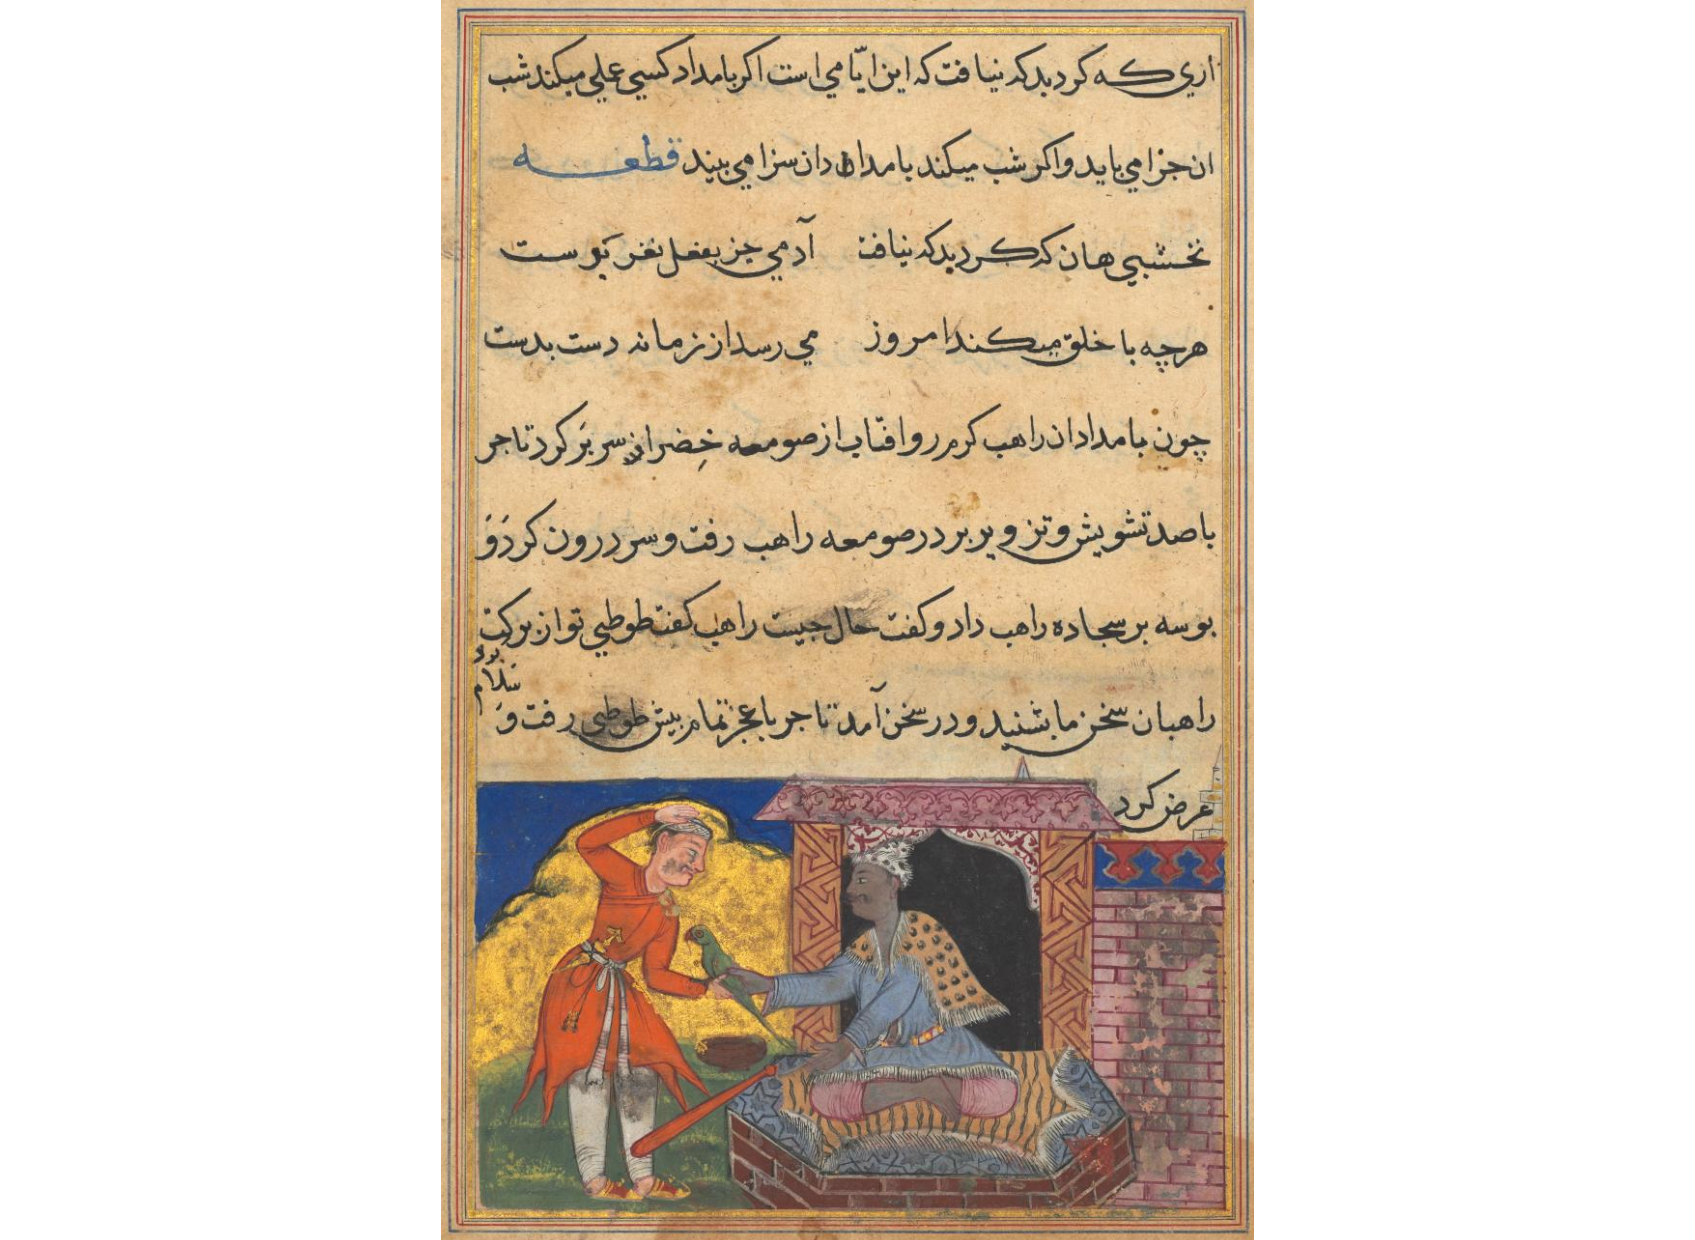 اري که کرد بد که نیافت که این ایّامي است اکر بامداد کسي عملي میکند شب
ان جزا مي یابد و اکر شب میکند بامدادان سزا مي بیند قطعه
نخشبي هان که کرد بد که نیافت آدمي جز بفعل نغز نرست
هرچه با خلق میکند امروز مي رسد از زمانه دست بدست
چون بامدادان راهب کرم رو افتاب از صومعه خضرا سر بر کرد تاجر
با صد تشویش و تزویر بر در صومعه راهب رفت و سر درون کرد و
بوسه بر سجاده راهب داد و کفت حال چیست راهب کفت طوطي تو از برکت
راهبان سخن ما بشنید و در سخن آمد تاجر با عجز تمام پیش طوطي رفت و
سلام برد
عرض کرد